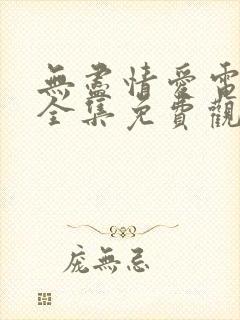 無盡情愛電
全集免費觀
龐無忌